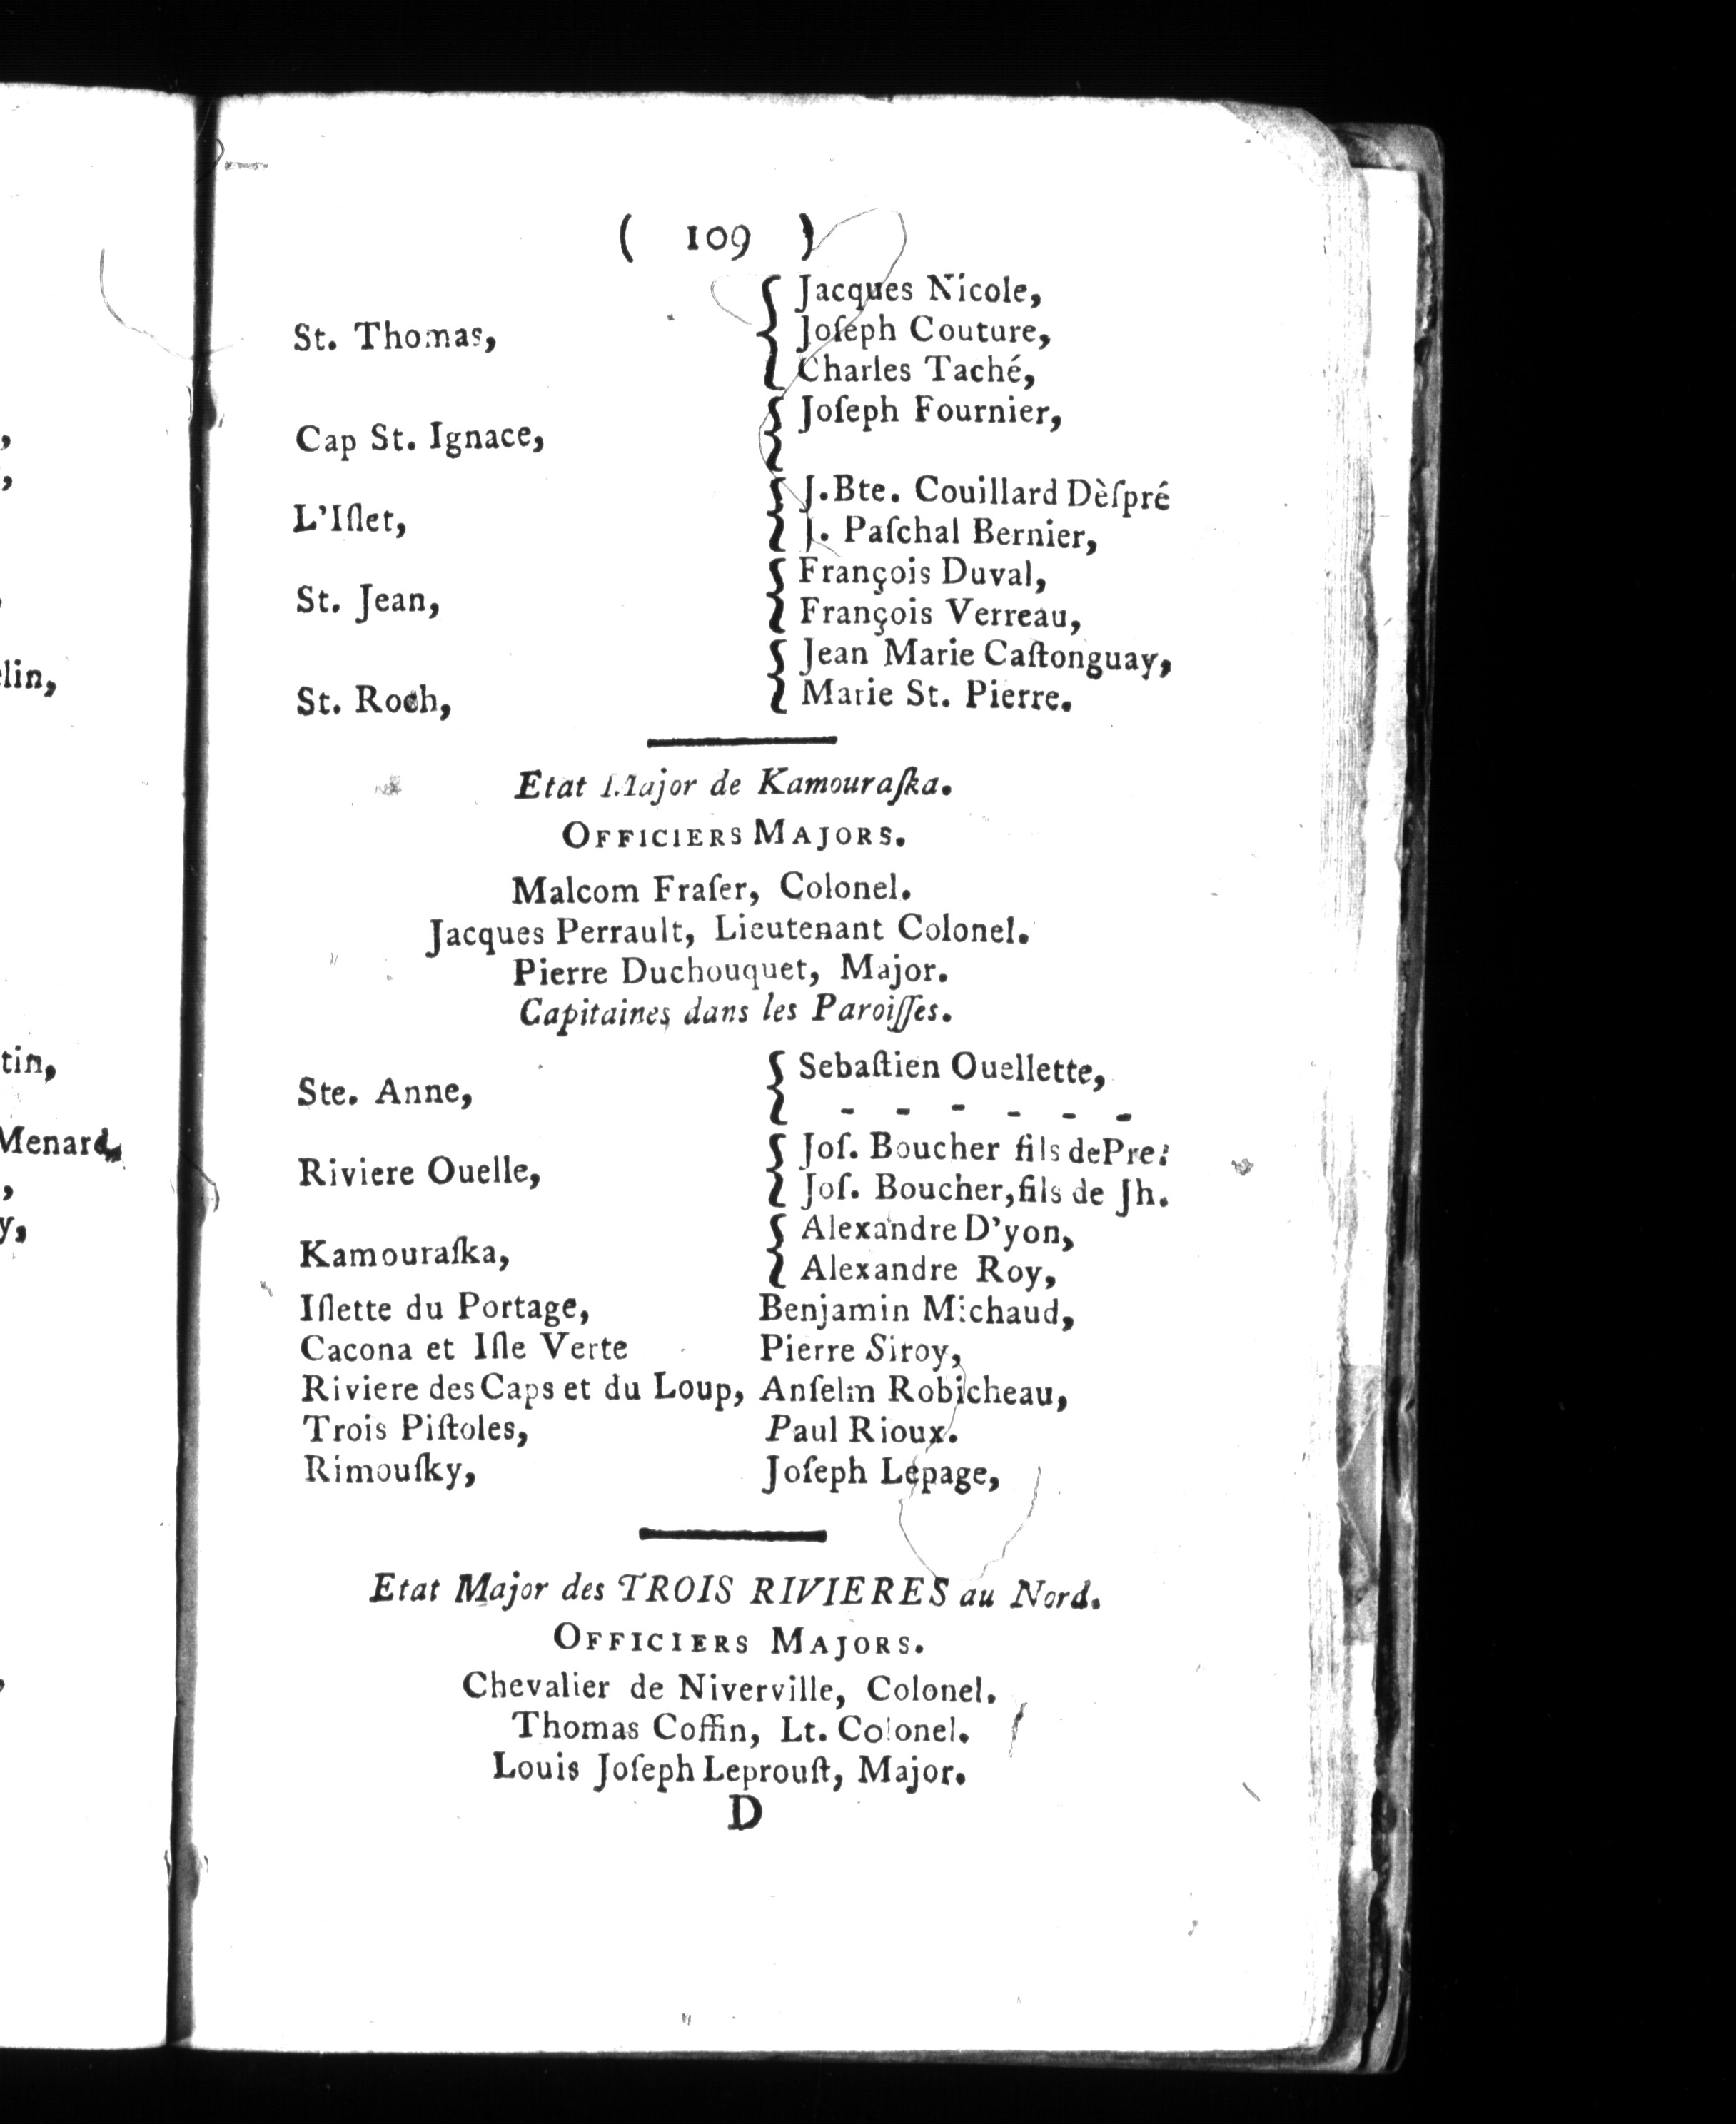 ( 109 )
St. Thomas, { Jacques Nicole,
Joſeph Couture,
Charles Taché,
Cap St. Ignace, { Joſeph Fournier,
L'Iſlet, { J. Bte. Couillard Dèſpré
J. Paſchal Bernier,
St. Jean, { François Duval,
François Verreau,
St. Roch, { Jean Marie Caſtonguay,
Marie St. Pierre.
Etat Major de Kamouraſka.
OFFICIERS MAJORS.
Malcom Fraſer, Colonel.
Jacques Perrault, Lieutenant Colonel.
Pierre Duchouquet, Major.
Capitaines dans les Paroiſſes.
Ste. Anne, { Sebaſtien Ouellette,
- - - - - -
Riviere Ouelle, { Joſ. Boucher fils de Pre.
Joſ. Boucher, fils de Jh.
Kamouraſka, { Alexandre D'yon,
Alexandre Roy,
Iſlette du Portage, Benjamin Michaud,
Cacona et Iſle Verte Pierre Siroy,
Riviere des Caps et du Loup, Anſelm Robicheau,
Trois Piſtoles, Paul Rioux.
Rimouſky, Joſeph Lepage,
Etat Major des TROIS RIVIERES au Nord.
OFFICIERS MAJORS.
Chevalier de Niverville, Colonel.
Thomas Coffin, Lt. Colonel.
Louis Joſeph Leprouſt, Major.
D
lin,
tin,
Menard,
y,